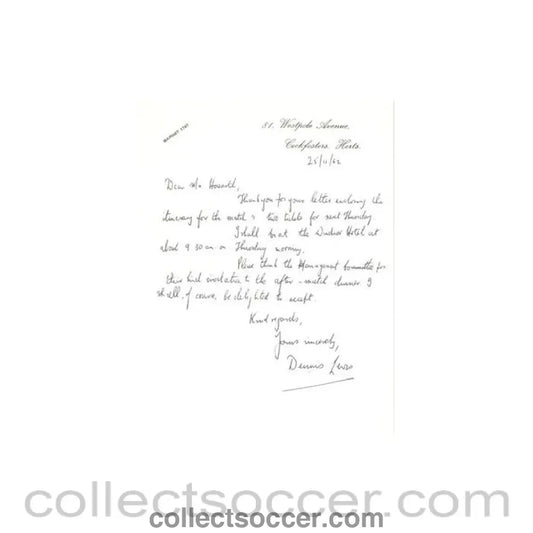 BARNET 7797
81, Westpole Avenue,
Cockfosters, Herts.
25/11/62
Dear Mr Howarth,
Thank you for your letter enclosing the
itinerary for the match & two tickets for next Thursday.
I shall be at the Windsor Hotel at
about 9.30 am on Thursday morning.
Please thank the Management Committee for
their kind invitation to the after-match dinner. I
shall, of course, be delighted to accept.
Kind regards,
Yours sincerely,
Dennis
collectsoccer.com
collectsoccer.com